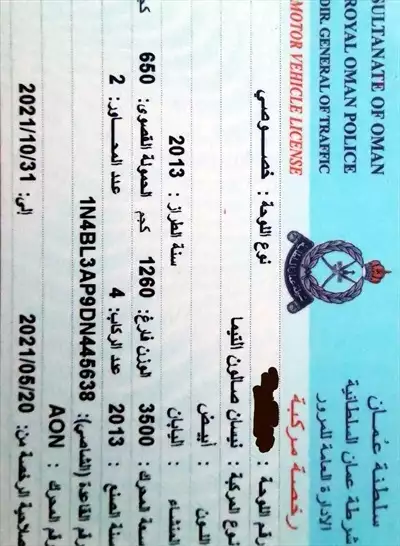 SULTANATE OF OMAN
ROYAL OMAN POLICE
DIR. GENERAL OF TRAFFIC
MOTOR VEHICLE LICENSE
سلطنة عمان
شرطة عمان السلطانية
الادارة العامة للمرور
رخصة مركبة
رقم اللوحة :
نوع اللوحة : خصوصي
نوع المركبة : نيسان صالون التيما
اللون : أبيض
المنشاء : اليابان
سنة الطراز : 2013
سعة المحرك: 3500
الوزن فارغ: 1260 كجم
الحمولة القصوى: 650 كجم
سنة الصنع : 2013
عدد الركاب: 4
عدد المحاور: 2
رقم القاعدة (الشاصي): 1N4BL3AP9DN445638
رقم المحرك : AON
صلاحية الرخصة من: 2021/05/20
إلى: 2021/10/31